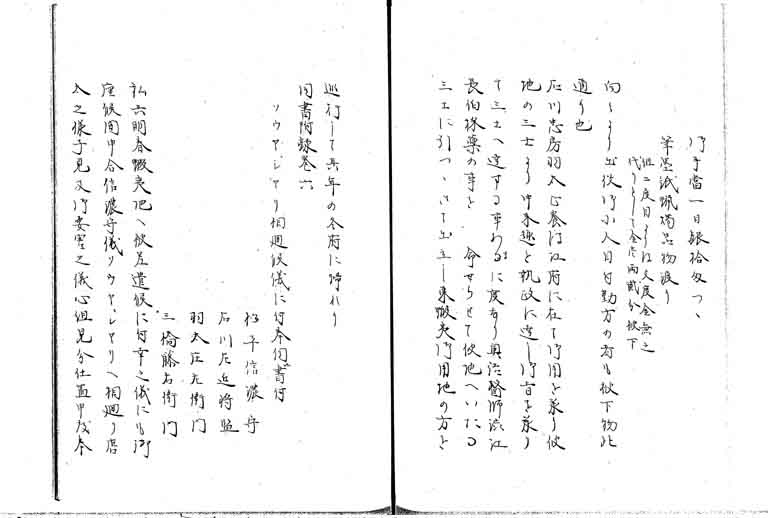 御手當一日銀拾匁つゝ
筆墨紙蝋燭品物渡り
但二度目よりは支度金無之
代りとして金壱両貳分被下
向々より出役御小人目付勤方の者も被下物此
通り也
石川忠房羽太正養江府に在て御用を承り彼
地の三士より申来趣を執政に達し御旨を承り
て三士へ達する事わるに度々有奥詰醫師渋江
長伯採藥の事を 命せられて彼地へいたる
三士に引つゝいて出立し東蝦夷御用地の方を
巡行して其年の冬府に帰れり
同書附録巻六
ソウヤ、シヤリ相廻候儀に付奉伺書付
松平信濃守
石川左近将監
羽太庄左衛門
三橋藤右衛門
私共明春蝦夷地へ被差遣候に付幸之儀にも御
座候間申合信濃守儀ソウヤ、シヤリへ相廻り居
人之様子見及御要害之儀心組見分仕置申度奉